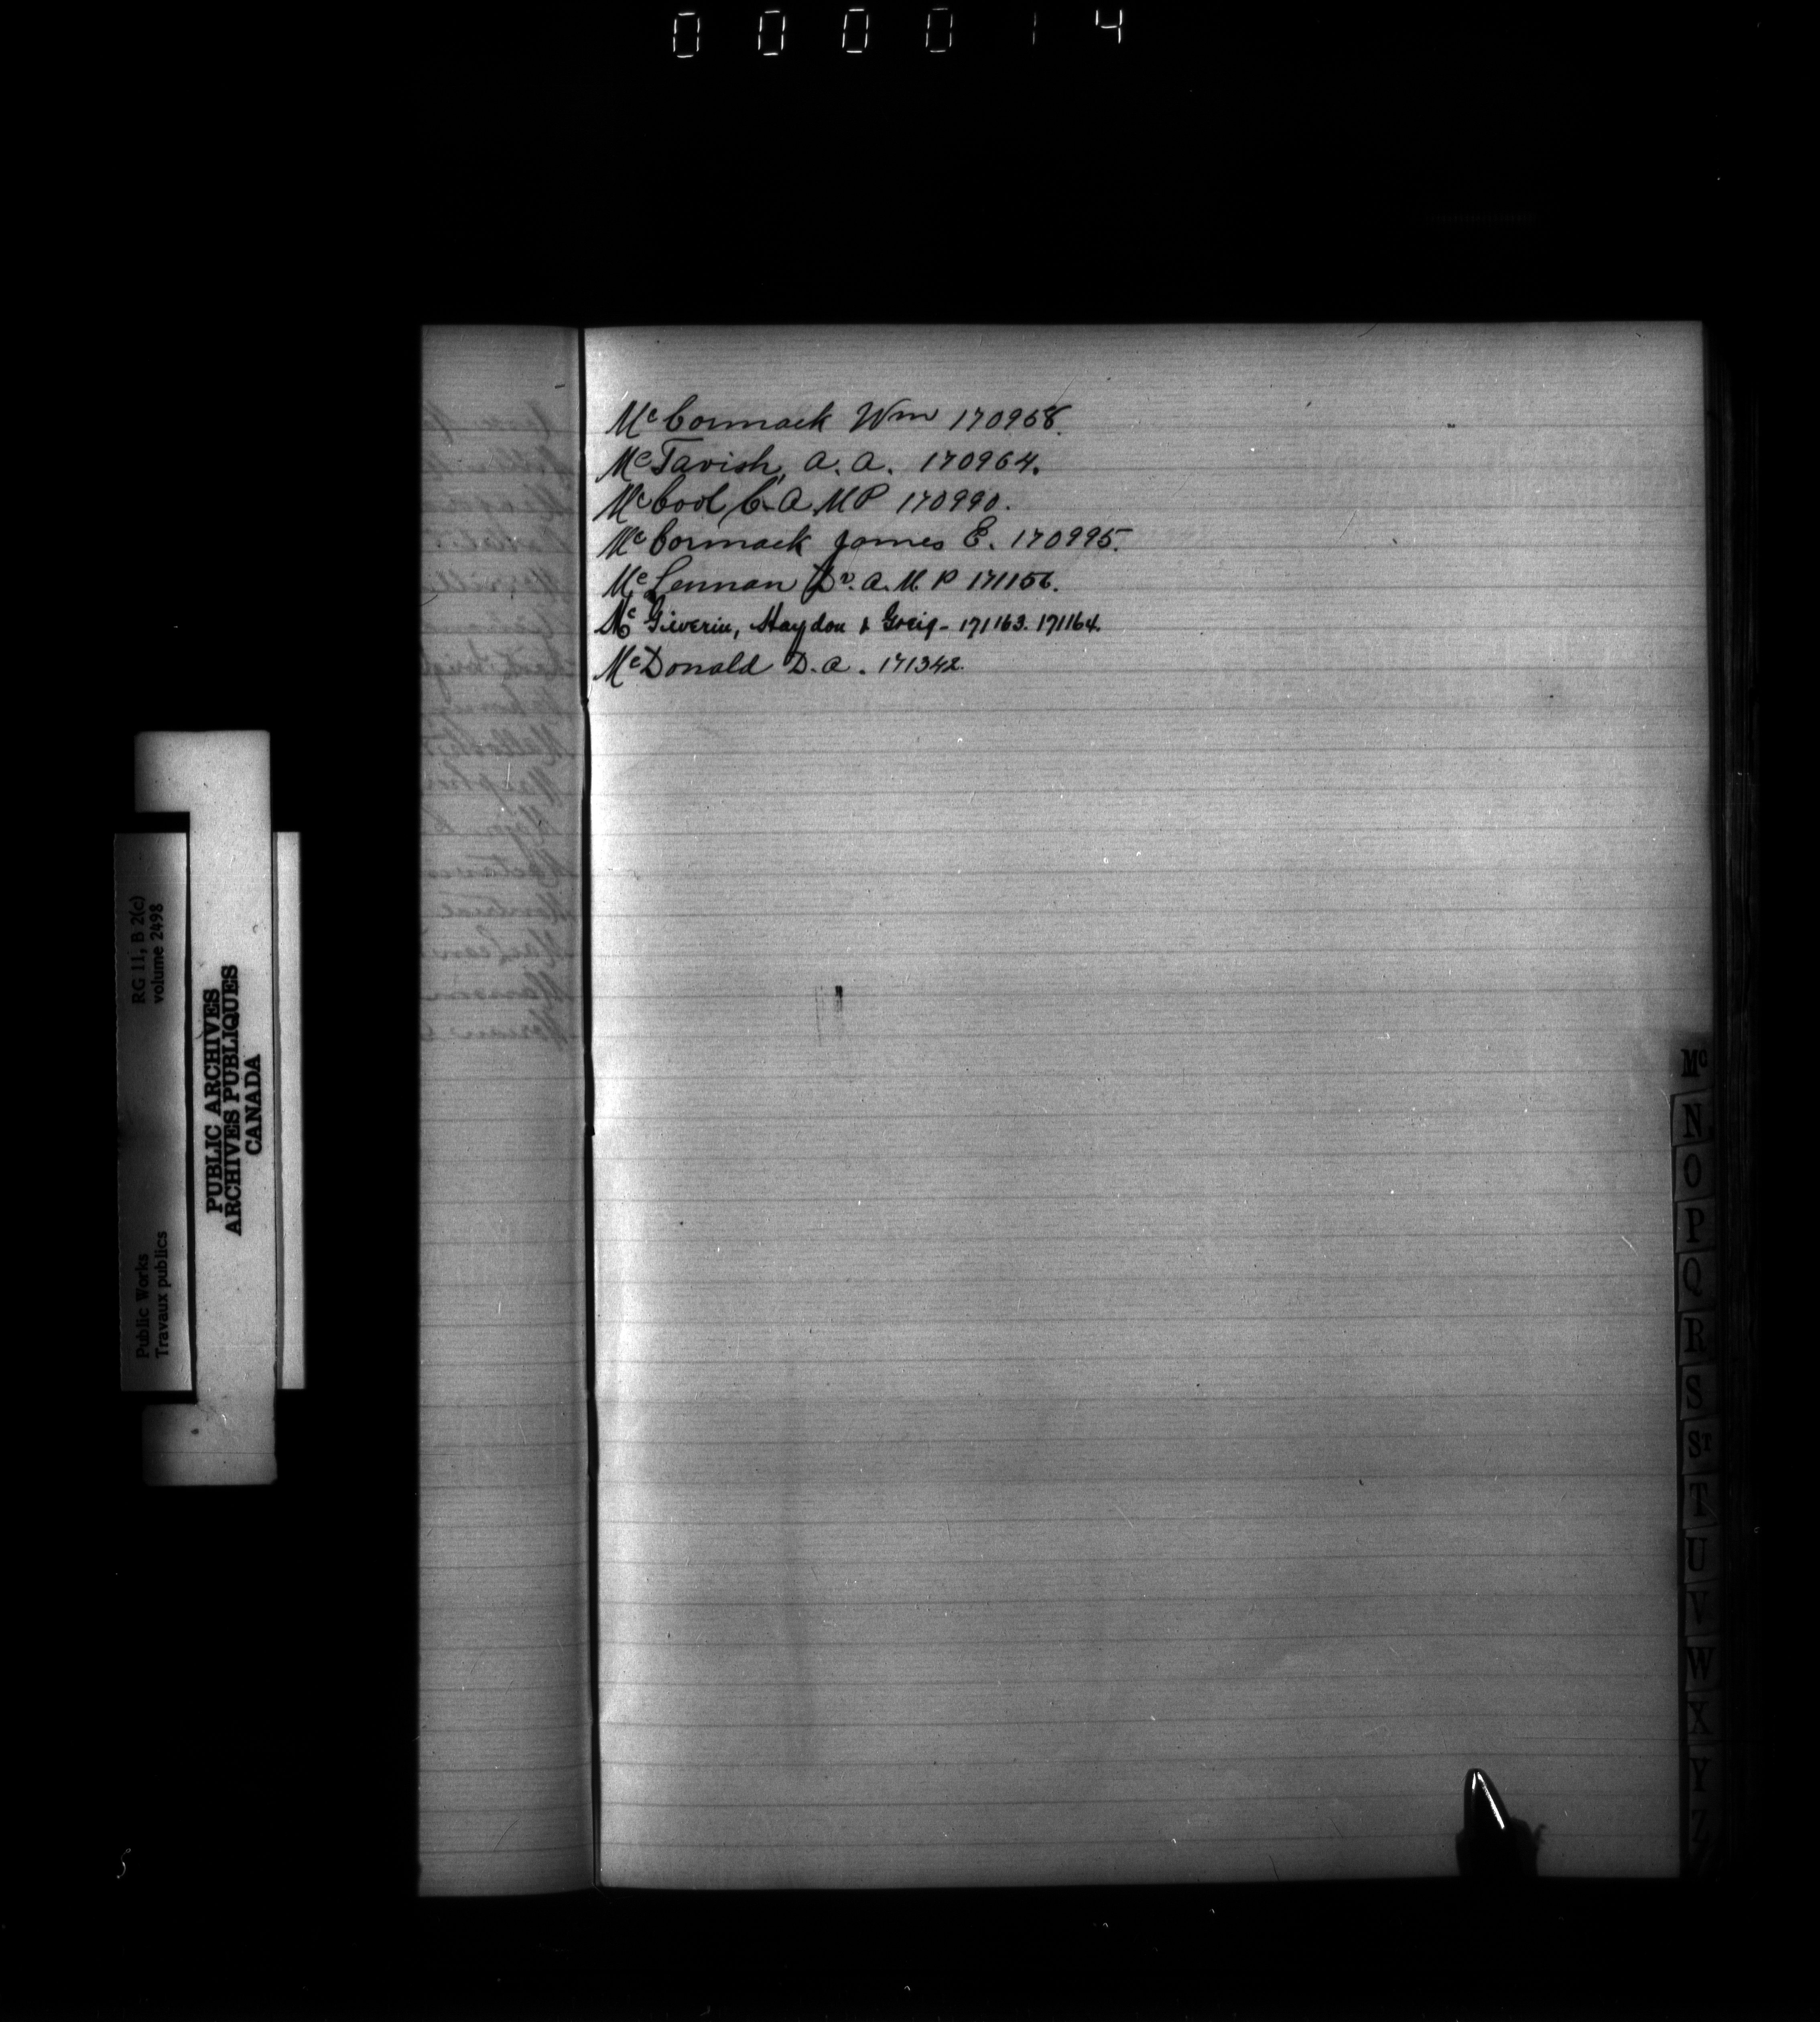 000014
Mc Cormack Wm 170958.
McTavish, A. A. 170964.
McCool C. A. MP 170990.
McCormack James E. 170995.
McLennan Dr. A. M. P 171156.
Mc Giverin, Haydon & Greig - 171163. 171164.
McDonald D. A. 171342.
Mc
N
O
P
Q
R
S
ST
T
U
V
W
X
Y
Z
RG 11, B 2(c)
volume 2498
Public Works
Travaux publics
PUBLIC ARCHIVES
ARCHIVES PUBLIQUES
CANADA